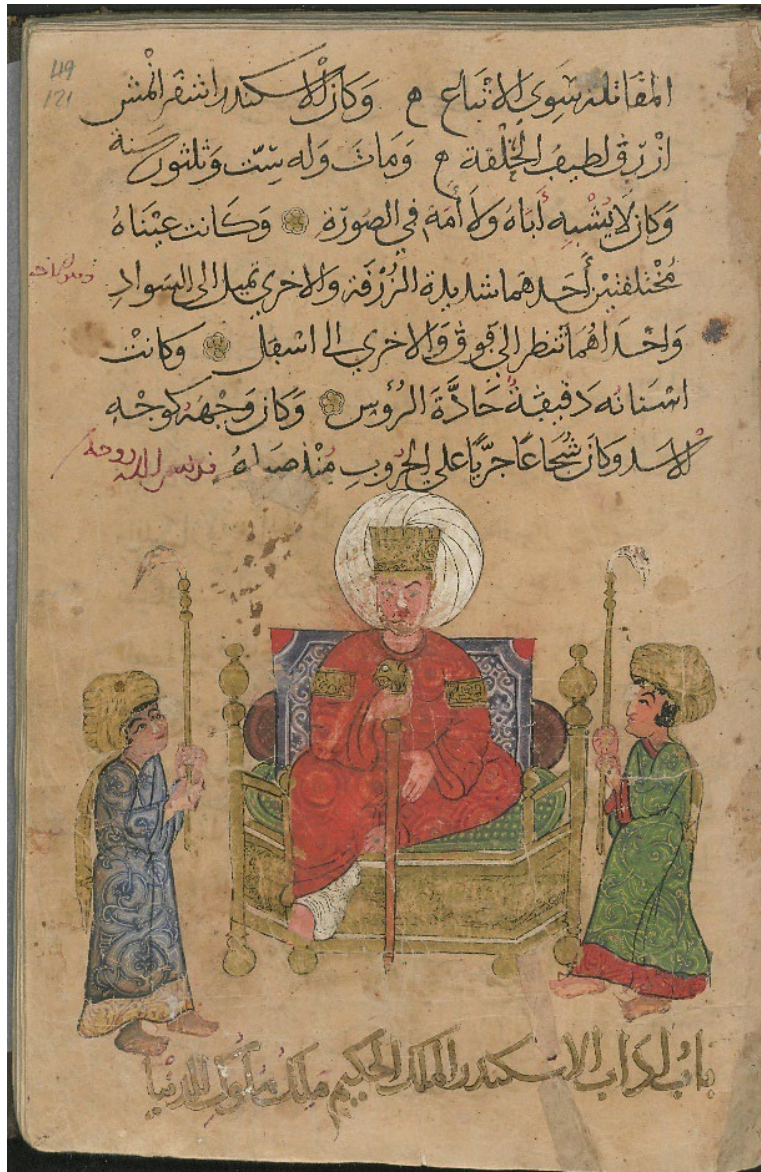 49
121
المقاتلة سوى الاتباع ه وكان الاسكندر اشقر انمش
ازرق لطيف الخلقة ه ومات وله ست وثلثون سنة
وكان لا يشبه أباه ولا أمه في الصورة وكانت عيناه
مختلفتين أحدهما شديدة الزرقة والاخرى تميل الى السواد
واحداهما تنظر الى فوق والاخرى الى اسفل وكانت
اسنانه دقيقة حادّة الرؤس وكان وجهه كوجه
الاسد وكان شجاعًا جريًّا على الحروب منذ صباه قدس الله روحه
باب اداب الاسكندر الملك الحكيم ملك ملوك الدنيا